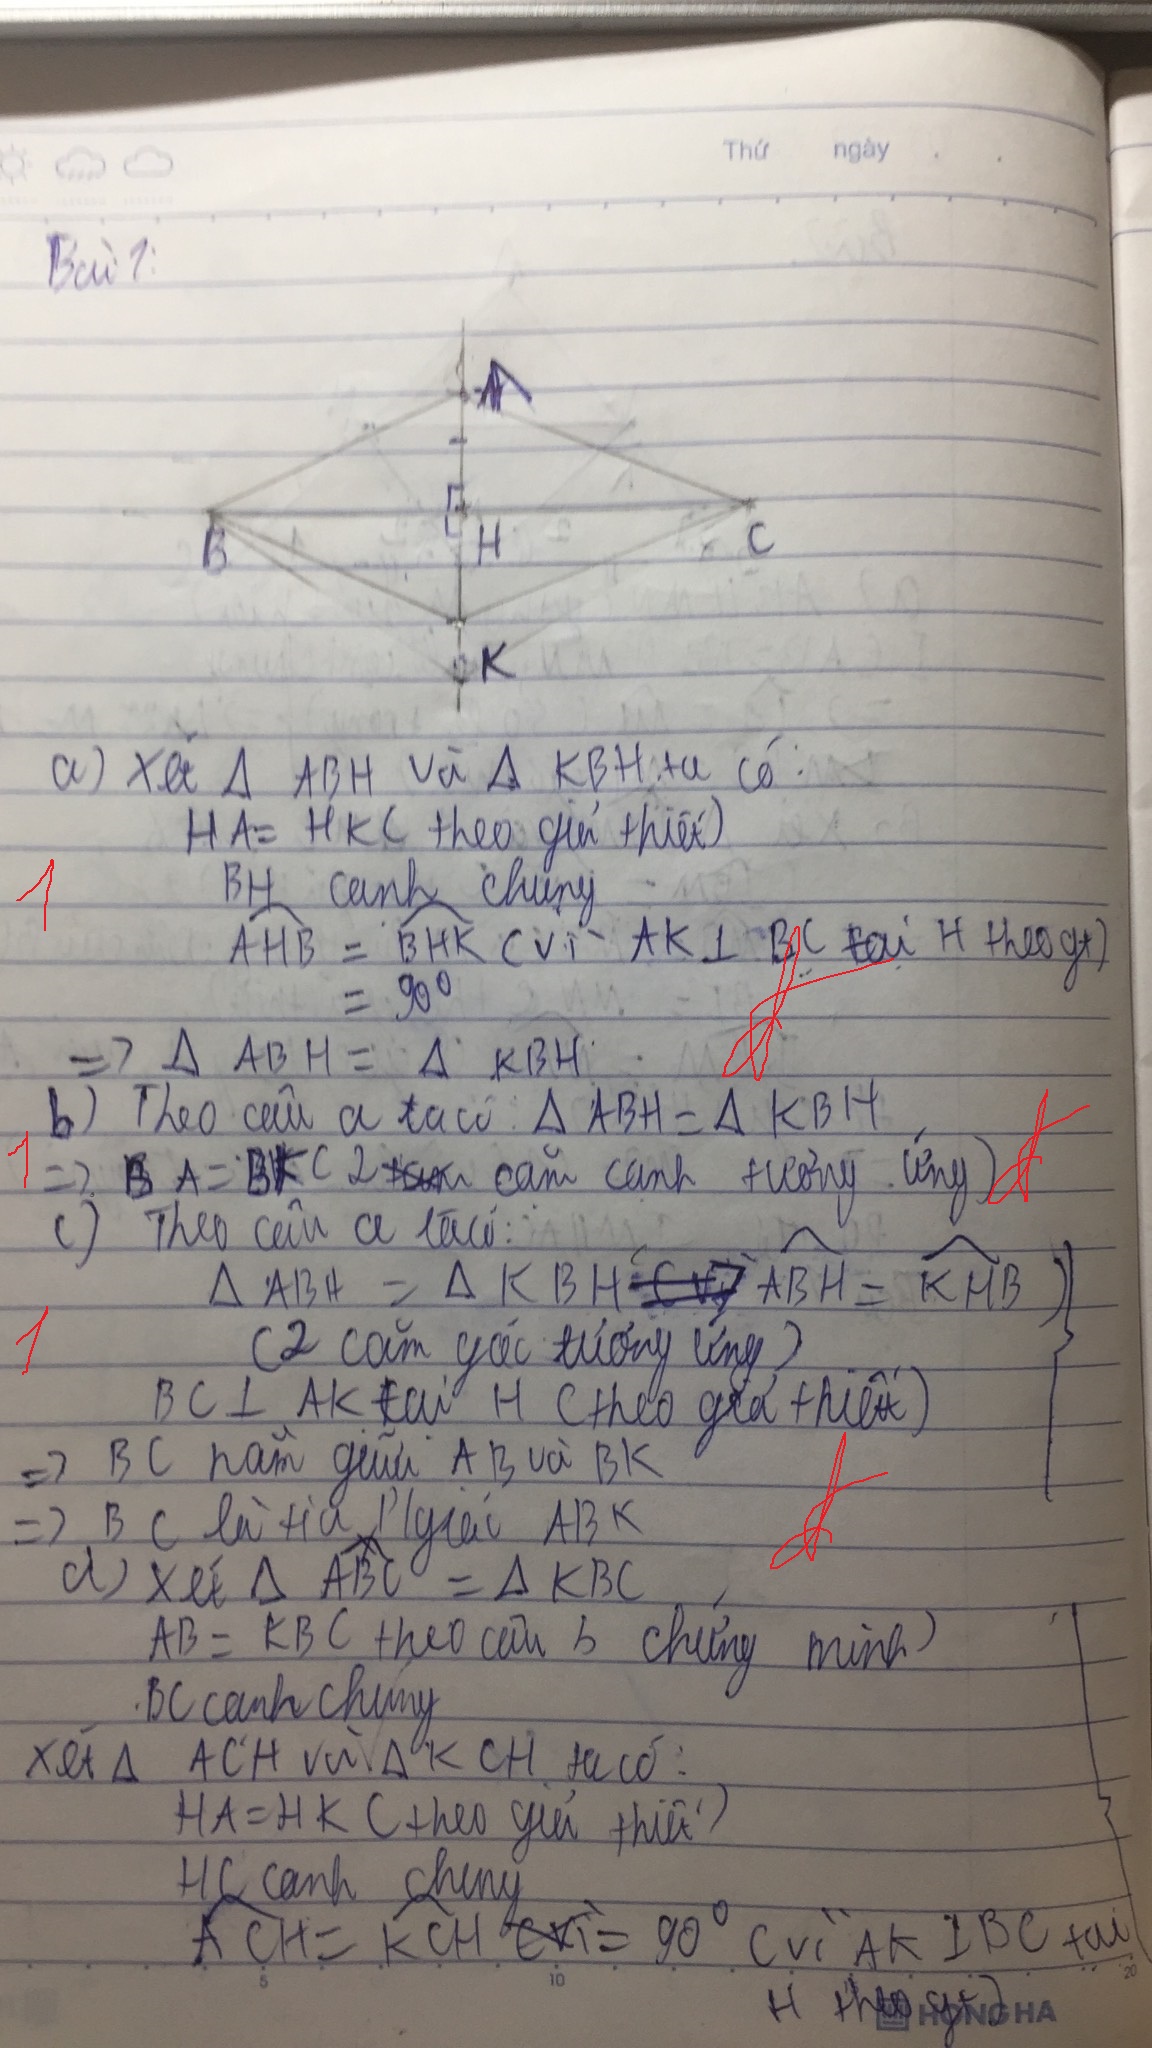 Thứ ngày
Bài 1:
A
B H C
K
a) Xét Δ ABH và Δ KBH ta có:
HA = HK (theo giả thiết)
1
BH cạnh chung
AHB = BHK (vì AK ⊥ BC tại H theo gt)
= 90°
=> Δ ABH = Δ KBH
b) Theo câu a ta có: Δ ABH = Δ KBH
1
=> BA = BK (2 cặm cạnh tương ứng)
c) Theo câu a ta có:
Δ ABH = Δ KBH ABH = KHB )
1
(2 cặm góc tương ứng)
BC ⊥ AK tại H (theo giả thiết)
=> BC nằm giữa AB và BK
=> BC là tia P/giác ABK
d) Xét Δ ABC = Δ KBC
AB = KB (theo câu b chứng minh)
BC cạnh chung
Xét Δ ACH và Δ KCH ta có:
HA = HK (theo giả thiết)
HC cạnh chung
ACH = KCH = 90° (vì AK ⊥ BC tại
H theo gt)
5 10 20
HONG HA